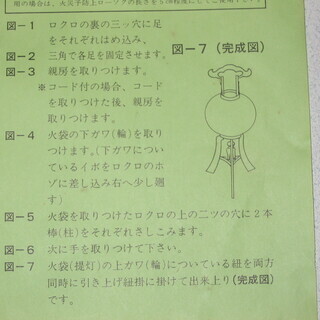 図－1 ロクロの裏の三ッ穴に足
をそれぞれはめ込み、
図－2 三角で各足を固定させます。
図－7（完成図）
図－3 親房を取りつけます。
※コード付の場合、コード
を取りつけた後、親房を
取りつけます。
図－4 火袋の下ガワ（輪）を取り
つけます。（下ガワについ
ているイボをロクロのホ
ゾに差し込み右へ少し廻
す）
図－5 火袋を取りつけたロクロの上の二ツの穴に２本
棒（柱）をそれぞれさしこみます。
図－6 次に手を取りつけて下さい。
図－7 火袋（提灯）の上ガワ（輪）についている紐を両方
同時に引き上げ紐掛に掛けて出来上り（完成図）
です。